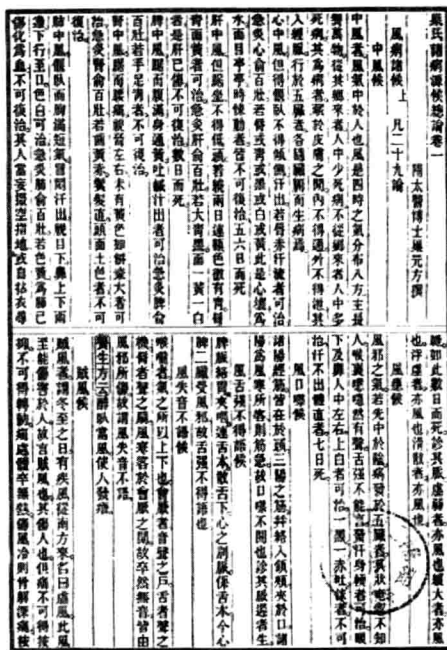 巢氏諸病源候總論卷一
隋太醫博士巢元方撰
風病諸候上 凡二十九論
中風候
中風者風氣中於人也風是四時之氣分布八方主長
養萬物從其鄉來者人中少死病不從鄉來者人中多
死病其為病者藏於皮膚之間內不得通外不得泄其
入經脈行於五臟者各隨臟腑而生病焉
心中風但得偃臥不得傾側汗出若唇赤汗流者可治
急灸心俞百壯若唇或青或黑或白或黃此是心壞為
水面目亭亭時悚動者皆不可復治五六日而死
肝中風但踞坐不得低頭若繞兩目連額色微有青唇
青面黃者可治急灸肝俞百壯若大青黑面一黃一白
者是肝已傷不可復治數日而死
脾中風踞而腹滿身通黃吐鹹汁出者可治急灸脾俞
百壯若手足青者不可復治
腎中風踞而腰痛視脅左右未有黃色如餅粢大者可
治急灸腎俞百壯若齒黃赤鬢髮直頭面土色者不可
復治
肺中風偃臥而胸滿短氣冒悶汗出視目下鼻上下兩
邊下行至口色白可治急灸肺俞百壯若色黃為肺已
傷化為血不可復治其人當妄掇空指地或自拈衣尋
縫如此數日而死診其脈虛弱者亦風也緩大者亦風
也浮虛者亦風也滑散者亦風也
風癔候
風邪之氣若先中於陰病發於五臟者其狀奄忽不知
人喉裏噫噫然有聲舌強不能言發汗身軟者可治眼
下及鼻人中左右上白者可治一黑一赤吐沫者不可
治汗不出體直者七日死
風口噤候
諸陽經筋皆在於頭三陽之筋並絡入頷頰夾於口諸
陽為風寒所客則筋急故口噤不開也診其脈遲者生
風舌強不得語候
脾脈絡胃夾咽連舌本散舌下心之別脈係舌本今心
脾二臟受風邪故舌強不得語也
風失音不語候
喉嚨者氣之所以上下也會厭者音聲之戶舌者聲之
機唇者聲之扇風寒客於會厭之間故卒然無音皆由
風邪所傷故謂風失音不語
養生方云醉臥當風使人發瘖
賊風候
賊風者謂冬至之日有疾風從南方來名曰虛風此風
至能傷害於人故言賊風也其傷人也但痛不可得按
抑不可得轉動痛處體卒無熱傷風冷則骨解深痛按